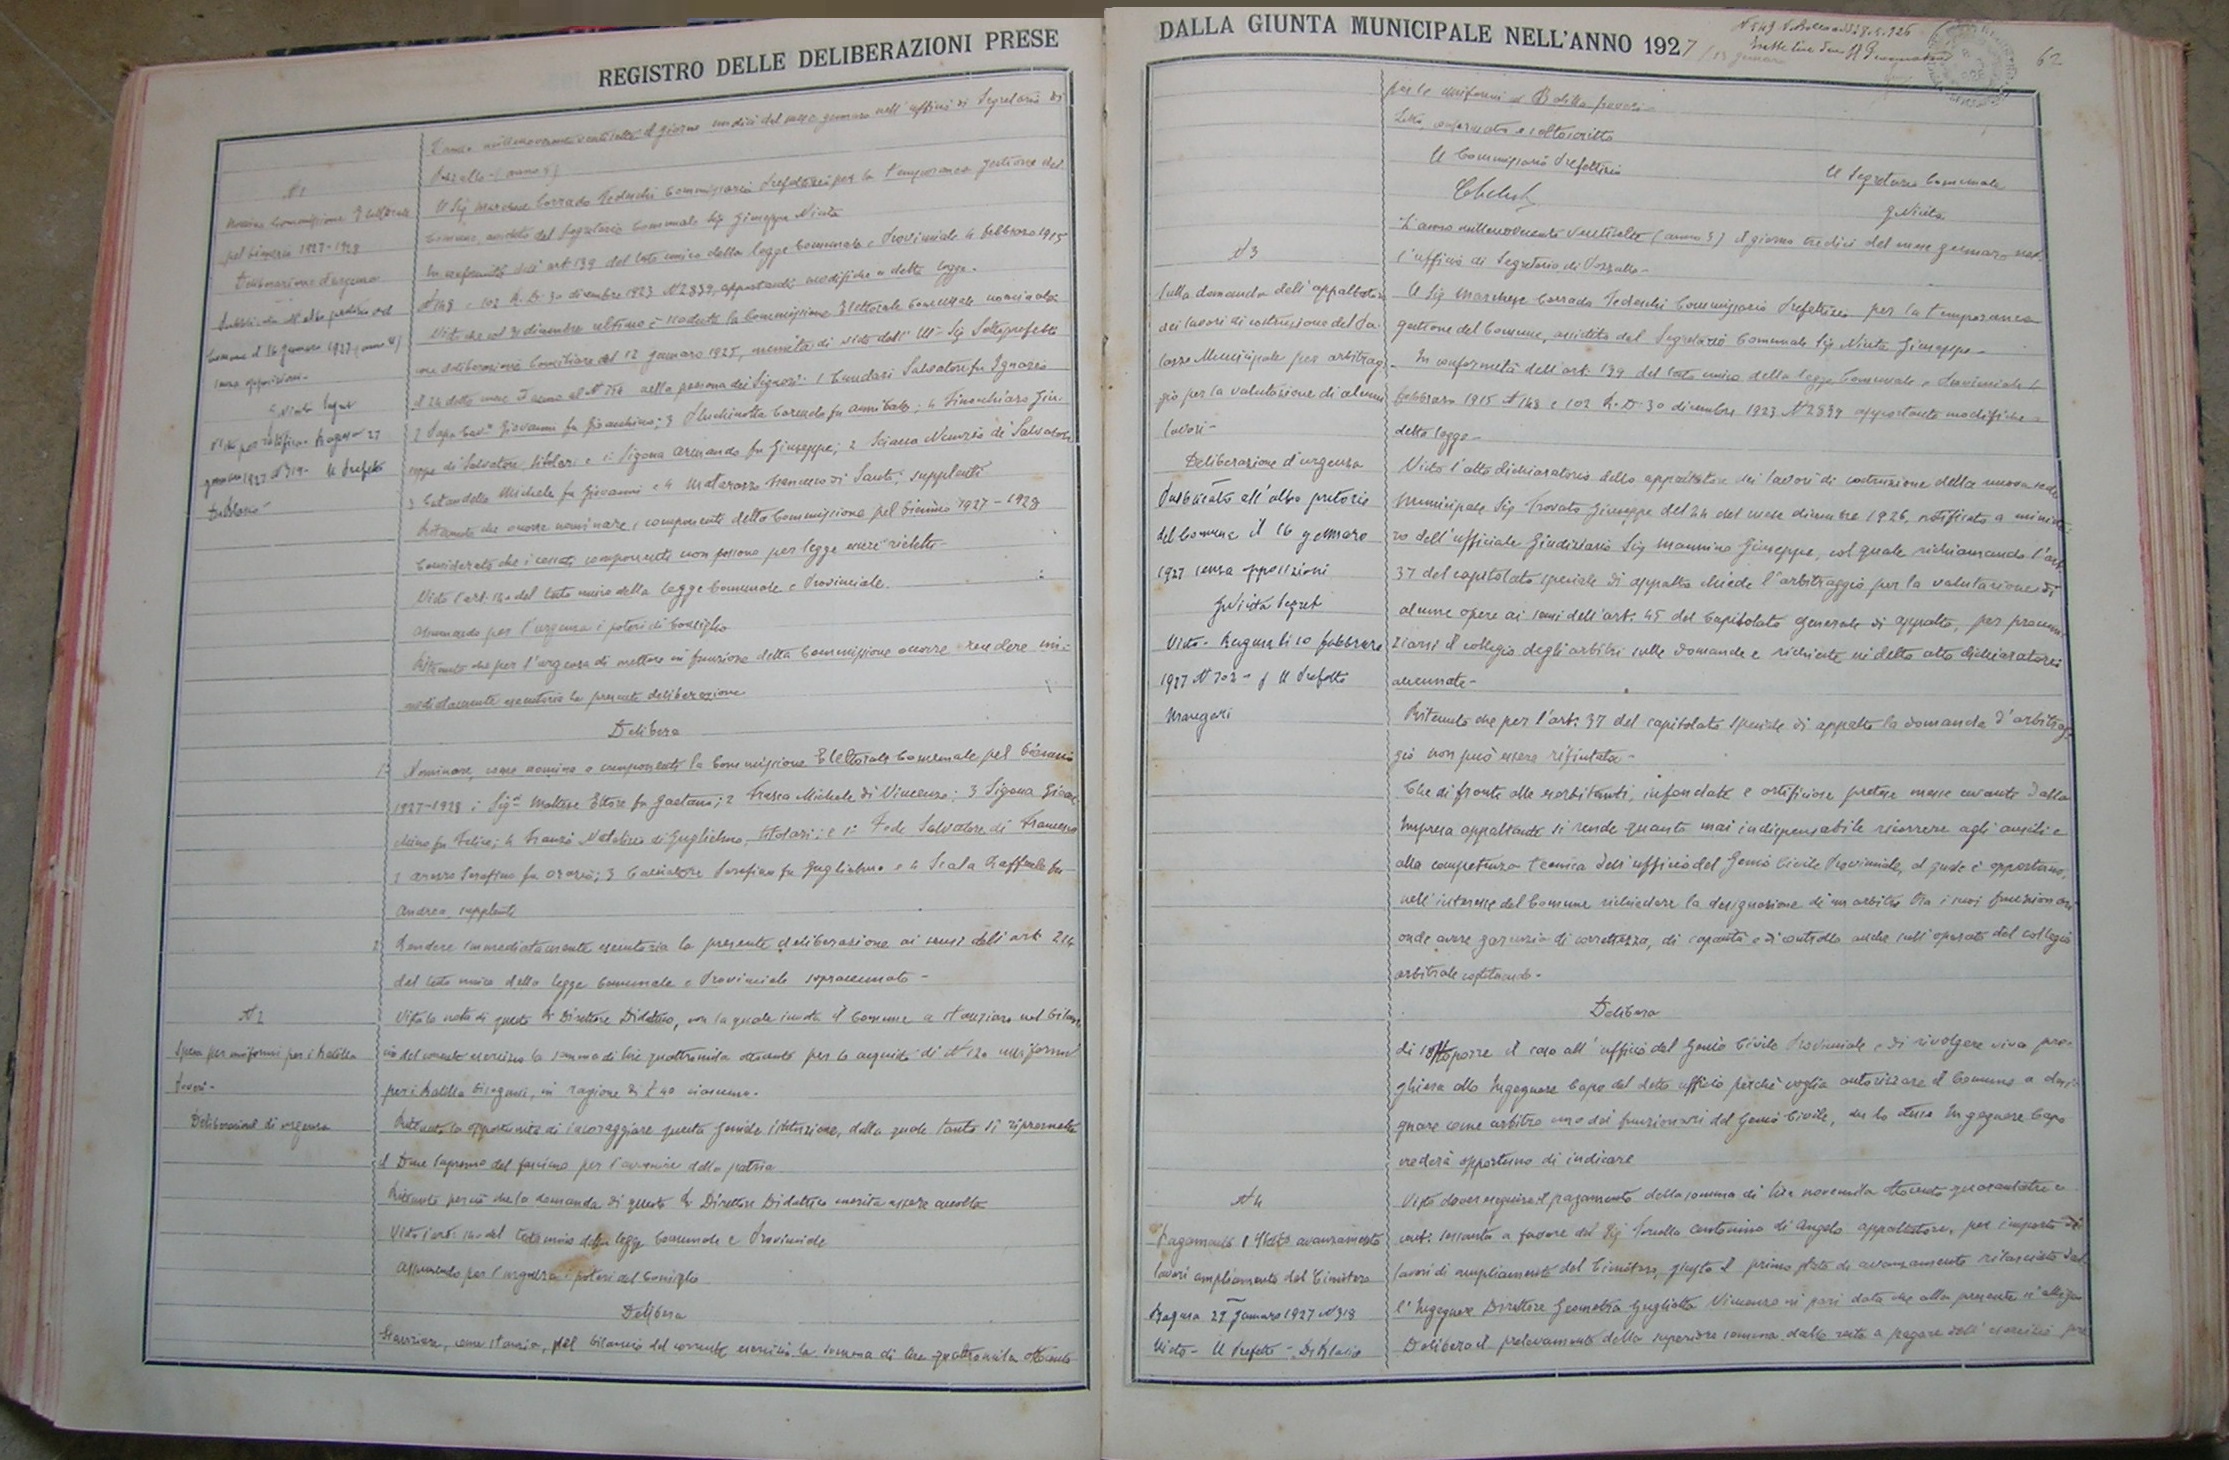 REGISTRO DELLE DELIBERAZIONI PRESE
L'anno millenovecentoventisette il giorno undici del mese gennaro nell'ufficio di Segretario di
Pozzallo - (anno 5)
N 1
Nomina Commissione Elettorale
pel biennio 1927-1928
Deliberazione d'urgenza
Pubblicata all'albo pretorio del
Comune il 16 gennaro 1927 (anno 5)
senza opposizioni -
Segret
Ragusa 27
gennaro 1927 N 319 - Il Prefetto
Il Sig Marchese Corrado Tedeschi Commissario Prefettizio per la temporanea gestione del
Comune, assistito del Segretario Comunale Sig Giuseppe Nivita
In conformità dell'art 139 del testo unico della legge Comunale e Provinciale 4 febbraro 1915
N 148 e 102 R. D. 30 dicembre 1923 N 2839, apportanti modifiche a detta legge.
Visto che col 31 dicembre ultimo è scaduta la Commissione Elettorale Comunale nominata
con deliberazione Consiliare del 12 gennaro 1925, munita di visto dell' Ill. Sig Sottoprefetto
il 24 detto mese nella persona dei Signori: 1 Salvatore fu Ignazio
2 Giovanni fu Gioacchino; 3 Pluchinotta Corrado fu Annibale; 4 Finocchiaro Giu-
seppe di Salvatore titolari e 1: Sigona Armando fu Giuseppe; 2 Sciarra Nunzio di Salvatore
3 Michele fu Giovanni e 4 Matarazzo Francesco di Santi; supplenti
Ritenuto che occorre nominare i componenti detta Commissione pel biennio 1927 - 1928
Considerato che i cessati componenti non possono per legge essere rieletti -
Visto l'art. 140 del testo unico della legge Comunale e Provinciale.
Assumendo per l'urgenza i poteri di Consiglio
Ritenuto che per l'urgenza di mettere in funzione detta Commissione occorre rendere im-
mediatamente esecutoria la presente deliberazione
Delibera
1: Nominare, come nomina a componenti la Commissione Elettorale Comunale pel biennio
1927-1928 i Sig.ri Maltese Ettore fu Gaetano; 2 Frasca Michele di Vincenzo; 3 Sigona Gioac-
chino fu Felice; 4 Natalizio di Guglielmo, titolari; e 1: Fede Salvatore di Francesco
2 Serafino fu Orazio; 3 Serafino fu Guglielmo e 4 Scala Raffaele fu
Andrea supplenti
2: Rendere immediatamente esecutoria la presente deliberazione ai sensi dell'art 214
del testo unico della legge Comunale e Provinciale sopracennato -
N 2
Spesa per uniformi per i Balilla
poveri -
Deliberazione di urgenza
Vista la nota di questo R Direttore Didattico, con la quale invita il Comune a stanziare nel bilan-
cio del corrente esercizio la somma di lire quattromila ottocento per lo acquisto di N 120 uniformi
per i Balilla bisognosi, in ragione di £ 40 ciascuno.
Ritenuto la opportunità di incoraggiare questa geniale istituzione, dalla quale tanto si ripromette
il Duce Supremo del fascismo per l'avvenire della patria
Ritenuto perciò che la domanda di questo R Direttore Didattico merita essere accolta
Visto l'art: 140 del testo unico della legge Comunale e Provinciale
Assumendo per l'urgenza i poteri del Consiglio
Delibera
Stanziare, come stanzia, nel bilancio del corrente esercizio la somma di lire quattromila ottocento
DALLA GIUNTA MUNICIPALE NELL'ANNO 1927
62
per le uniformi ai Balilla poveri -
Letto, confermato e sottoscritto
Il Commissario Prefettizio
Il Segretario Comunale
GNivita
N 3
Sulla domanda dell'appaltatore
dei lavori di costruzione del Pa-
lazzo Municipale per arbitrag-
gio per la valutazione di alcuni
lavori -
Deliberazione d'urgenza
Pubblicata all'albo pretorio
del Comune il 16 gennaro
1927 senza opposizioni
GNivita Segret
Visto - Ragusa li 10 febbraro
1927 N 702 - Il Prefetto
L'anno millenovecento ventisette (anno 5) il giorno tredici del mese gennaro nel-
l'ufficio di Segretario di Pozzallo -
Il Sig Marchese Corrado Tedeschi Commissario Prefettizio per la temporanea
gestione del Comune, assistito del Segretario Comunale Sig Nivita Giuseppe -
In conformità dell'art. 139 del testo unico della legge Comunale e Provinciale 4
febbraro 1915 N 148 e 102 R. D. 30 dicembre 1923 N 2839 apportante modifiche a
detta legge -
Visto l'atto dichiaratorio dello appaltatore dei lavori di costruzione della nuova sede
Municipale Sig Trovato Giuseppe del 24 del mese dicembre 1926, notificato a ministe-
ro dell'ufficiale Giudiziario Sig Mannino Giuseppe, col quale richiamando l'art.
37 del capitolato speciale di appalto chiede l'arbitraggio per la valutazione di
alcune opere ai sensi dell'art. 45 del Capitolato generale di appalto, per pronun-
ziarsi il collegio degli arbitri sulle domande e richieste in detto atto dichiaratorio
accennate -
Ritenuto che per l'art: 37 del capitolato speciale di appalto la domanda d'arbitrag-
gio non può essere rifiutata -
Che di fronte alle esorbitanti, infondate e artificiose pretese messe avanti dalla
Impresa appaltante si rende quanto mai indispensabile ricorrere agli ausili e
alla competenza tecnica dell'ufficio del Genio Civile Provinciale, al quale è opportuno,
nell'interesse del Comune richiedere la designazione di un arbitro tra i suoi funzionari
onde avere garanzia di correttezza, di capacità e di controllo anche sull'operato del collegio
arbitrale costituendo -
Delibera
di sottoporre il caso all'ufficio del Genio Civile Provinciale e di rivolgere viva pre-
ghiera allo Ingegnere Capo del detto ufficio perché voglia autorizzare il Comune a desi-
gnare come arbitro uno dei funzionari del Genio Civile, che lo stesso Ingegnere Capo
crederà opportuno di indicare
N 4
Pagamento I Stato avanzamento
lavori ampliamento del Cimitero
Ragusa 27 Gennaro 1927 N 318
Visto - Il Prefetto -
Visto dover eseguire il pagamento della somma di lire novemila ottocento quarantatre e
cent: sessanta a favore del Sig di Angelo appaltatore, per importo di
lavori di ampliamento del Cimitero, giusto il primo stato di avanzamento rilasciato dal-
l'Ingegnere Direttore Geometra Gugliotta Vincenzo in pari data che alla presente si allega
Delibera il prelevamento della superiore somma dalle resta a pagare dell'esercizio